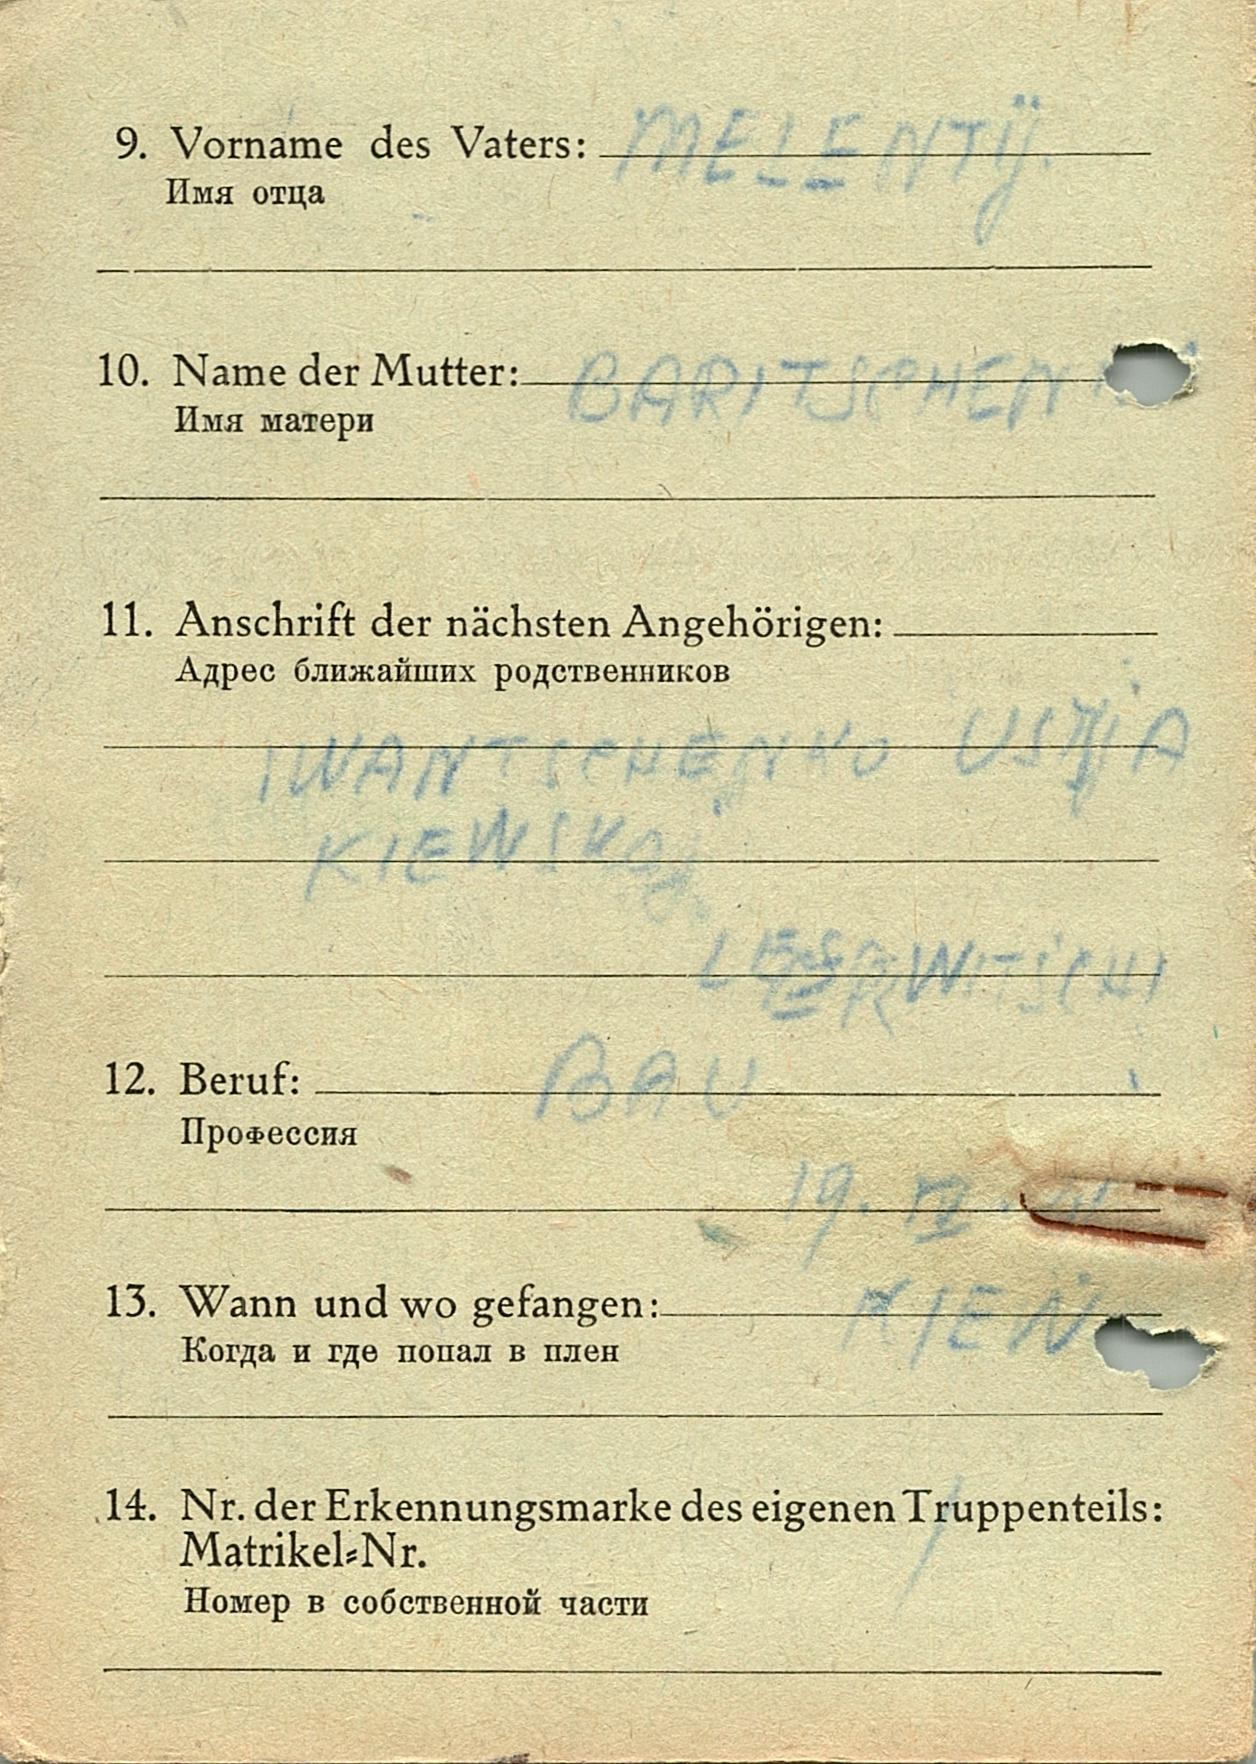 9. Vorname des Vaters: MELENTŸ.
Имя отца
10. Name der Mutter: BARITSCHEN
Имя матери
11. Anschrift der nächsten Angehörigen:
Адрес ближайших родственников
IWANTSCHENKO
KIEWSKOJ
12. Beruf: BAU
Профессия
19.
13. Wann und wo gefangen: KIEW
Когда и где попал в плен
14. Nr. der Erkennungsmarke des eigenen Truppenteils: /
Matrikel-Nr.
Номер в собственной части